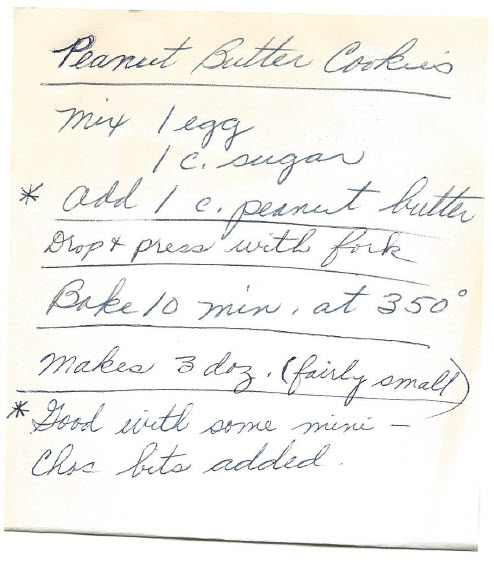 Peanut Butter Cookies
Mix 1 egg
1 c. sugar
* Add 1 c. peanut butter
Drop & press with fork
Bake 10 min. at 350°
Makes 3 doz. (fairly small)
* Good with some mini -
Choc bits added.